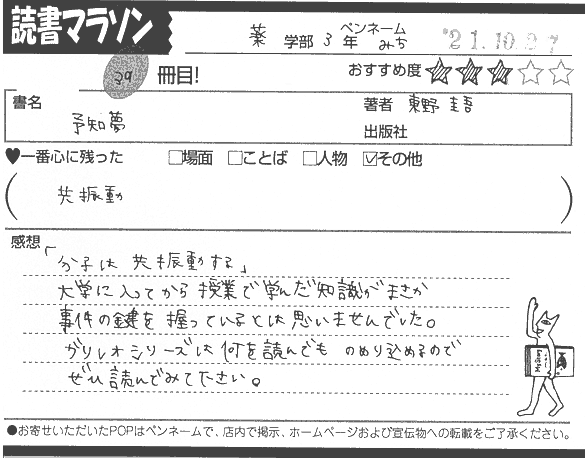 読書マラソン
薬 学部 3 年 ペンネーム みち '21.10.07
29 冊目! おすすめ度 ★★★☆☆
書名 予知夢 著者 東野 圭吾
出版社
♥一番心に残った □場面 □ことば □人物 ☑その他
共振動
感想
「分子は共振動する」
大学に入ってから授業で学んだ知識がまさか
事件の鍵を握っているとは思いませんでした。
ガリレオシリーズは何を読んでも のめり込めるので
ぜひ読んでみて下さい。
●お寄せいただいたPOPはペンネームで、店内で掲示、ホームページおよび宣伝物への転載をご了承ください。